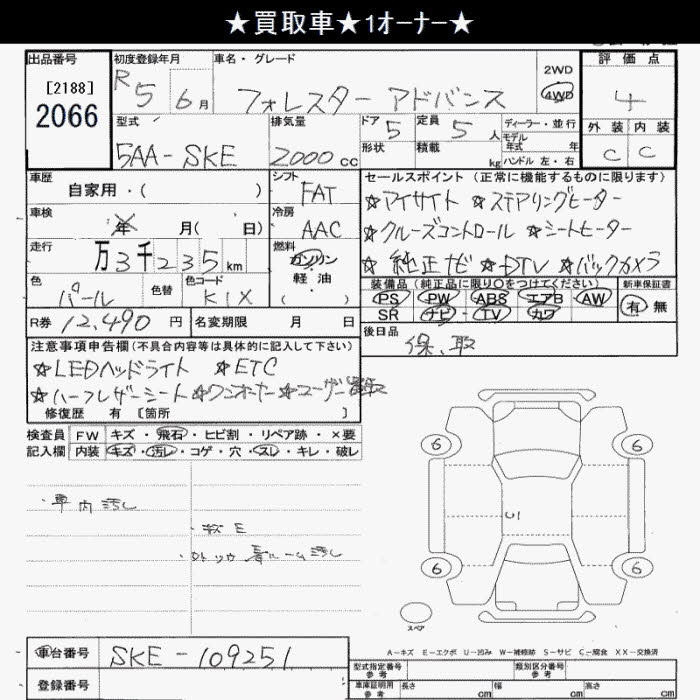 ★買取車★1オーナー★
出品番号
[2188]
2066
初度登録年月
R5 6月
車名・グレード
フォレスター アドバンス
2WD
4WD
評価点
4
外装 内装
C C
型式
5AA-SKE
排気量
2000cc
ドア 5
形状
定員 5人
積載 kg
ディーラー・並行
モデル
年式 年
ハンドル 左・右
車歴
自家用・( )
シフト
FAT
セールスポイント(正常に機能するものに限ります)
☆アイサイト ☆ステアリングヒーター
☆クルーズコントロール ☆シートヒーター
☆純正ナビ ☆DTV ☆バックカメラ
車検
年 月( 日)
冷房
AAC
走行
万3千235km
燃料
ガソリン
軽油
( )
色
パール
色替
色コード
K1X
装備品(純正品に限り○をつけてください)
PS PW ABS エアB AW
SR ナビ・TV カワ
新車保証書
有 無
R券 12,490円
名変期限 月 日
後日品
保、取
注意事項申告欄(不具合内容等は具体的に記入して下さい)
☆LEDヘッドライト ☆ETC
☆ハーフレザーシート☆ワンオーナー☆ユーザー買取
修復歴 有 [箇所 ]
検査員 FW キズ・飛石・ヒビ割・リペア跡・×要
記入欄 内装 キズ・汚レ・コゲ・穴・スレ・キレ・破レ
・車内汚レ
6 6
U1
6 6
スペア
A-キズ E-エクボ U-凹み W-補修跡 S-サビ C-腐食 XX-交換済
車台番号 SKE-109251
登録番号
型式指定番号
参考
類別区分番号
参考
車庫証明用
参考
長さ cm 幅 cm 高さ cm